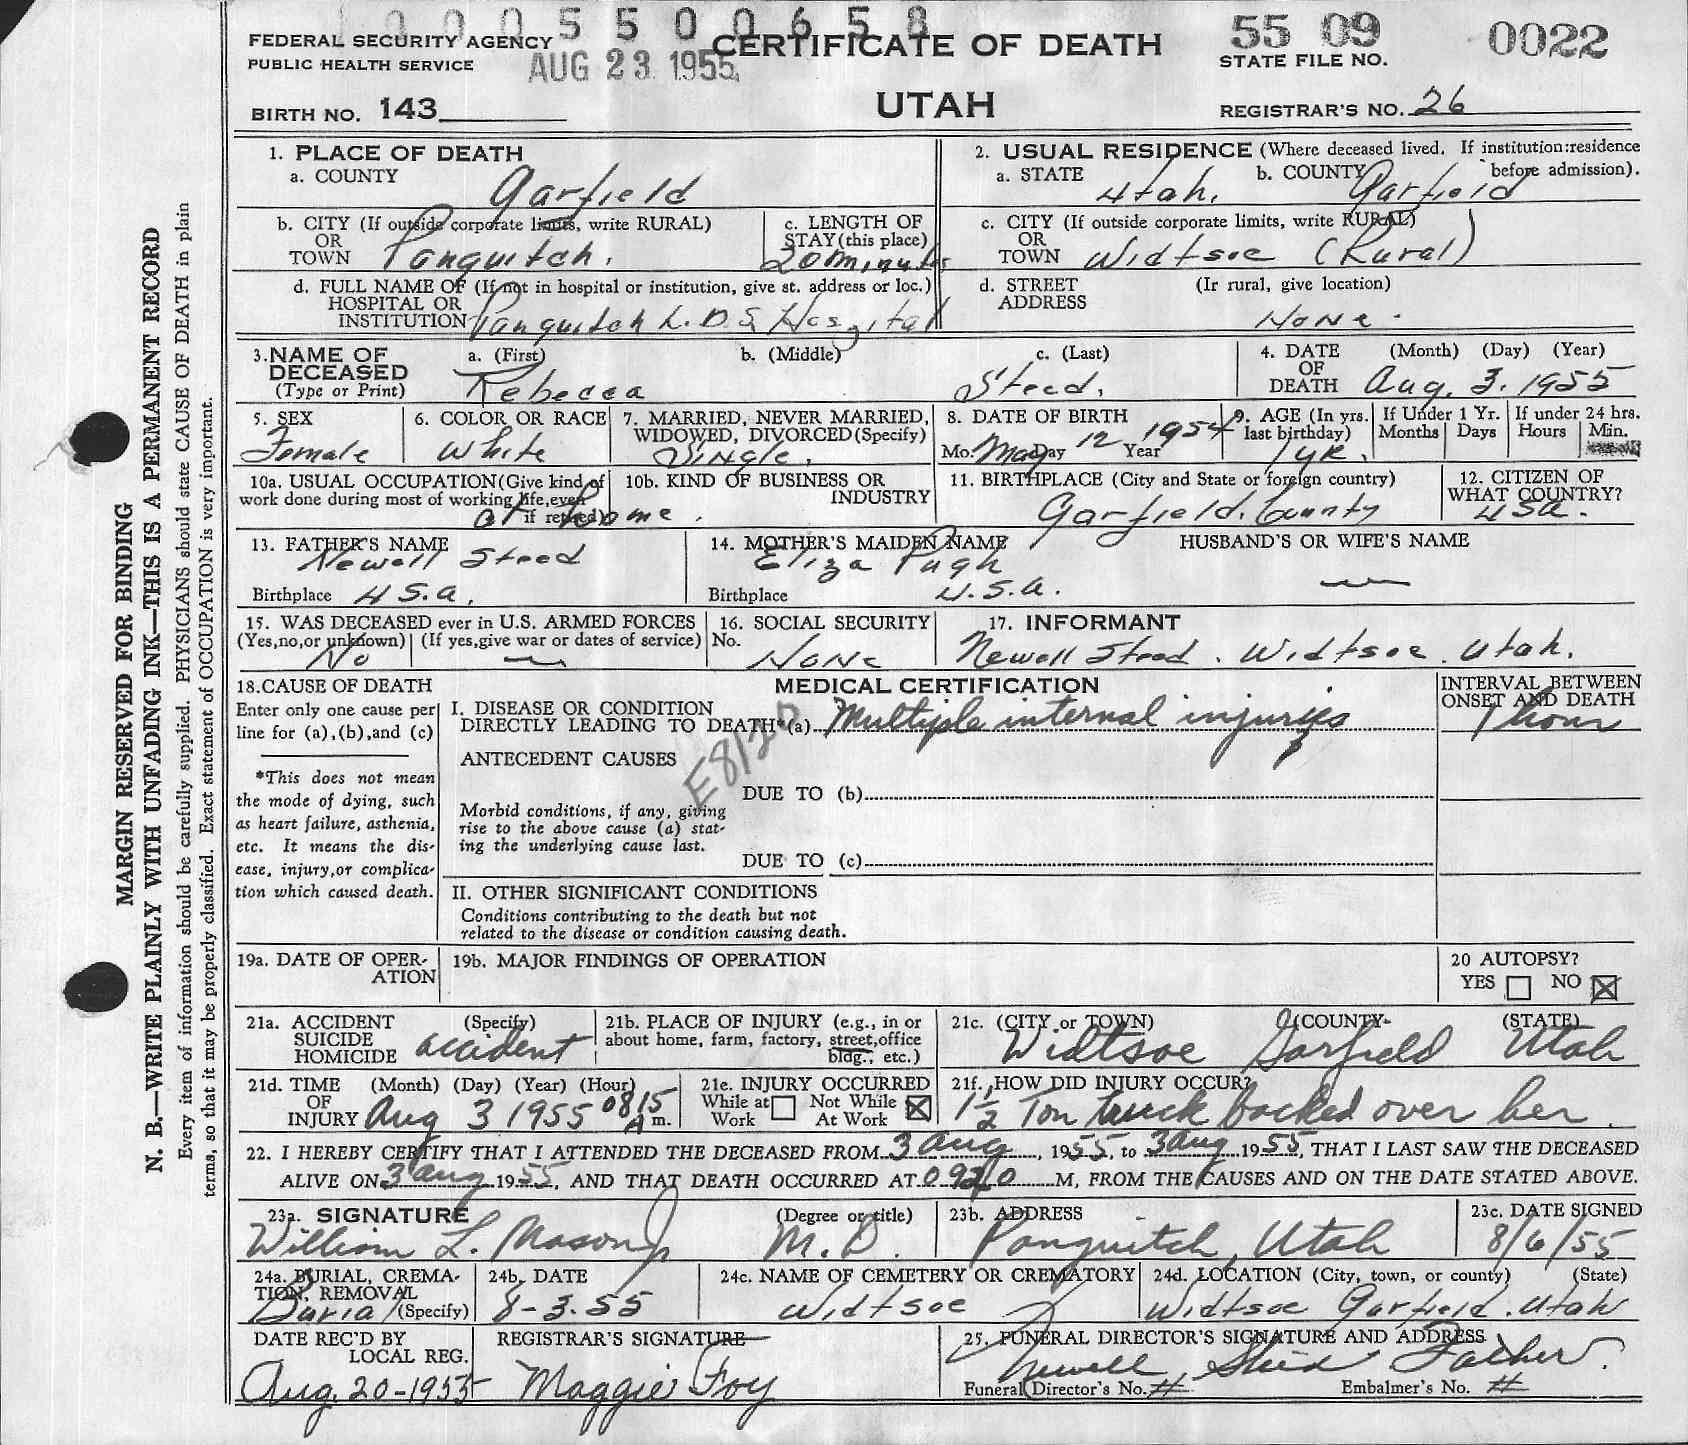 1 0 0 0 5 5 0 0 6 5 8
FEDERAL SECURITY AGENCY
PUBLIC HEALTH SERVICE
AUG 23 1955
CERTIFICATE OF DEATH
UTAH
55 09 0022
STATE FILE NO.
BIRTH NO. 143
REGISTRAR'S NO. 26
1. PLACE OF DEATH
a. COUNTY Garfield
2. USUAL RESIDENCE (Where deceased lived. If institution: residence before admission).
a. STATE Utah. b. COUNTY Garfield
b. CITY (If outside corporate limits, write RURAL) OR TOWN Panguitch.
c. LENGTH OF STAY (this place) 20 minutes
c. CITY (If outside corporate limits, write RURAL) OR TOWN Widtsoe (Rural)
d. FULL NAME OF (If not in hospital or institution, give st. address or loc.) HOSPITAL OR INSTITUTION Panguitch L.D.S. Hospital
d. STREET ADDRESS (Ir rural, give location) None.
3. NAME OF DECEASED (Type or Print)
a. (First) Rebecca b. (Middle) c. (Last) Steed.
4. DATE OF DEATH (Month) (Day) (Year) Aug. 3. 1955
5. SEX Female
6. COLOR OR RACE White
7. MARRIED, NEVER MARRIED, WIDOWED, DIVORCED (Specify) Single.
8. DATE OF BIRTH Mo. May Day 12 Year 1954
9. AGE (In yrs. last birthday) 1 yr.
If Under 1 Yr. Months Days
If under 24 hrs. Hours Min.
10a. USUAL OCCUPATION (Give kind of work done during most of working life, even if retired) at home.
10b. KIND OF BUSINESS OR INDUSTRY
11. BIRTHPLACE (City and State or foreign country) Garfield. County
12. CITIZEN OF WHAT COUNTRY? USA.
13. FATHER'S NAME Newell Steed
Birthplace U.S.A.
14. MOTHER'S MAIDEN NAME Eliza Pugh
Birthplace U.S.A.
HUSBAND'S OR WIFE'S NAME —
15. WAS DECEASED ever in U.S. ARMED FORCES (Yes, no, or unknown) No (If yes, give war or dates of service) —
16. SOCIAL SECURITY No. None
17. INFORMANT Newell Steed. Widtsoe. Utah.
18. CAUSE OF DEATH
Enter only one cause per line for (a), (b), and (c)
*This does not mean the mode of dying, such as heart failure, asthenia, etc. It means the disease, injury, or complication which caused death.
MEDICAL CERTIFICATION
I. DISEASE OR CONDITION DIRECTLY LEADING TO DEATH* (a) Multiple internal injuries
INTERVAL BETWEEN ONSET AND DEATH 1 hour
ANTECEDENT CAUSES
Morbid conditions, if any, giving rise to the above cause (a) stating the underlying cause last.
DUE TO (b)
DUE TO (c)
II. OTHER SIGNIFICANT CONDITIONS
Conditions contributing to the death but not related to the disease or condition causing death.
19a. DATE OF OPERATION
19b. MAJOR FINDINGS OF OPERATION
20 AUTOPSY? YES NO X
21a. ACCIDENT SUICIDE HOMICIDE (Specify) accident
21b. PLACE OF INJURY (e.g., in or about home, farm, factory, street, office bldg., etc.)
21c. (CITY or TOWN) (COUNTY) (STATE) Widtsoe Garfield Utah
21d. TIME OF INJURY (Month) (Day) (Year) (Hour) Aug 3 1955 0815 A m.
21e. INJURY OCCURRED While at Work Not While At Work X
21f. HOW DID INJURY OCCUR? 1 1/2 Ton truck backed over her.
22. I HEREBY CERTIFY THAT I ATTENDED THE DECEASED FROM 3 Aug, 1955, to 3 Aug 1955, THAT I LAST SAW THE DECEASED
ALIVE ON 3 Aug 1955, AND THAT DEATH OCCURRED AT 0920 M, FROM THE CAUSES AND ON THE DATE STATED ABOVE.
23a. SIGNATURE (Degree or title) William L. Mason Jr M.D.
23b. ADDRESS Panguitch, Utah
23c. DATE SIGNED 8/6/55
24a. BURIAL, CREMATION, REMOVAL (Specify) Burial
24b. DATE 8-3.55
24c. NAME OF CEMETERY OR CREMATORY Widtsoe
24d. LOCATION (City, town, or county) (State) Widtsoe Garfield. Utah
DATE REC'D BY LOCAL REG. Aug. 20-1955
REGISTRAR'S SIGNATURE Maggie Foy
25. FUNERAL DIRECTOR'S SIGNATURE AND ADDRESS Newell Steed Father.
Funeral Director's No. # Embalmer's No. #
MARGIN RESERVED FOR BINDING
N. B.—WRITE PLAINLY WITH UNFADING INK—THIS IS A PERMANENT RECORD
Every item of information should be carefully supplied. PHYSICIANS should state CAUSE OF DEATH in plain
terms, so that it may be properly classified. Exact statement of OCCUPATION is very important.